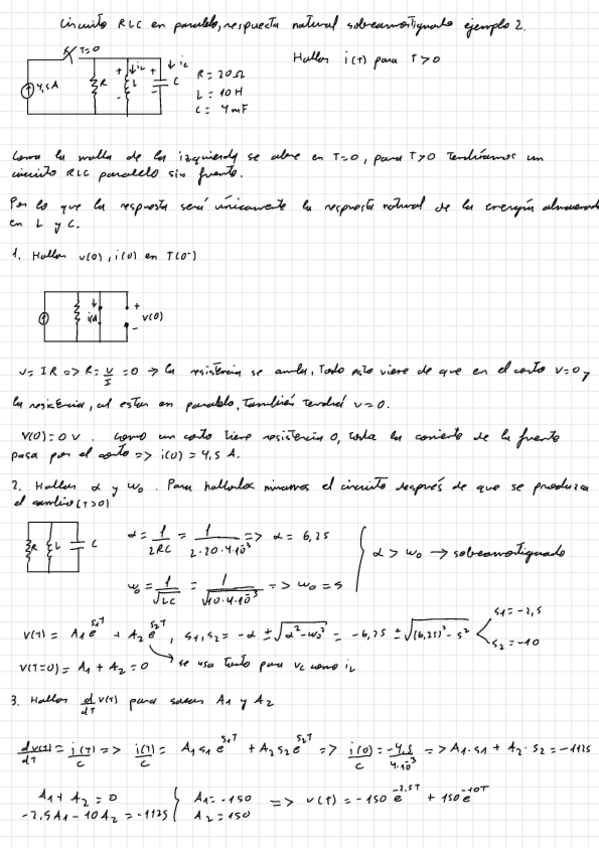 Circuito RLC en paralelo, respuesta natural sobreamortiguado ejemplo 2.
T=0
Hallar i(T) para T>0
4,5A
R
+ ↓iL
L
-
+ ↓ic
C
-
R = 20Ω
L = 10H
C = 4mF
Como la malla de la izquierda se abre en T=0, para T>0 Tendríamos un
circuito RLC paralelo sin fuente.
Por lo que la respuesta será únicamente la respuesta natural de la energía almacenada
en L y C.
1. Hallar v(0), i(0) en T(0⁻)
+
V(0)
-
V= IR => R= V/I = 0 → la resistencia se anula, Todo esto viene de que en el corto V=0 y
la resistencia, al estar en paralelo, también tendrá V=0.
V(0)=0V. Como un corto tiene resistencia 0, toda la corriente de la fuente
pasa por el corto => i(0) = 4,5 A.
2. Hallar α y ω₀. Para hallarlos miramos el circuito después de que se produzca
el cambio (T>0)
R L C
α = 1/(2RC) = 1/(2·20·4·10⁻³) => α = 6,25
α > ω₀ → sobreamortiguado
ω₀ = 1/√(LC) = 1/√(10·4·10⁻³) => ω₀ = 5
V(T) = A₁e^(s₁T) + A₂e^(s₂T), s₁,s₂ = -α ± √(α²-ω₀²) = -6,25 ± √((6,25)²-5²)
s₁=-2,5
s₂=-10
V(T=0) = A₁ + A₂ = 0
se usa tanto para Vc como iL
3. Hallar d/dT V(T) para sacar A₁ y A₂
dV(T)/dT = i(T)/C => i(T)/C = A₁s₁e^(s₁T) + A₂s₂e^(s₂T) => i(0)/C = -4,5/(4·10⁻³) => A₁·s₁ + A₂·s₂ = -1125
A₁ + A₂ = 0
-2,5A₁ - 10A₂ = -1125
A₁ = -150
A₂ = 150
=> V(T) = -150e^(-2,5T) + 150e^(-10T)